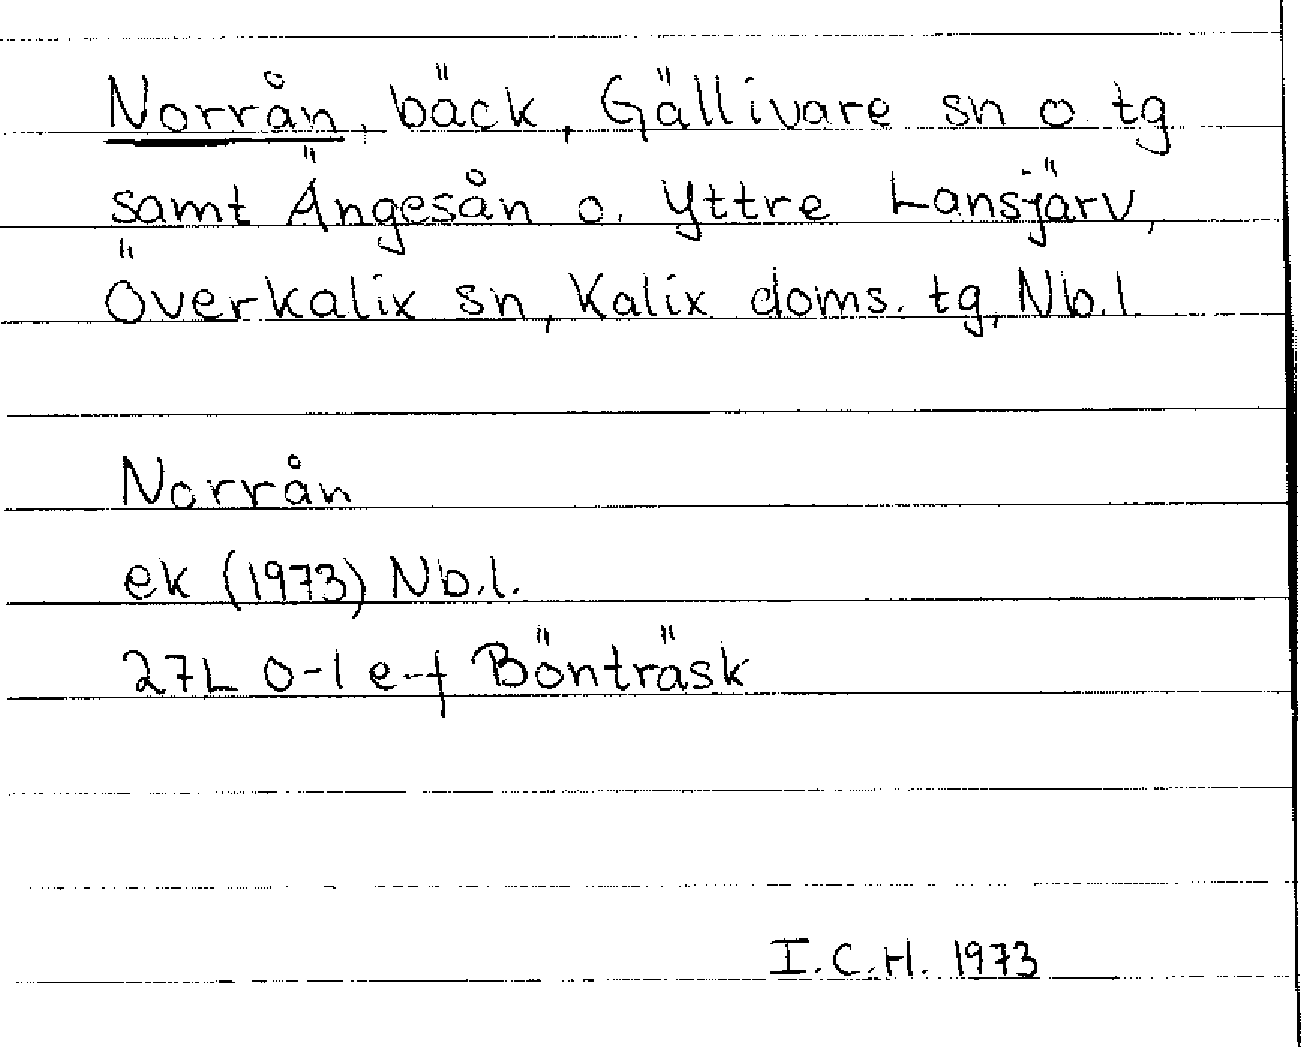 Norrån, bäck, Gällivare sn o tg
samt Ängesån o. Yttre Lansjärv,
Överkalix sn, Kalix doms. tg, Nb.l.
Norrån
ek (1973) Nb.l.
27L 0-1 e-f Bönträsk
I.C.H. 1973